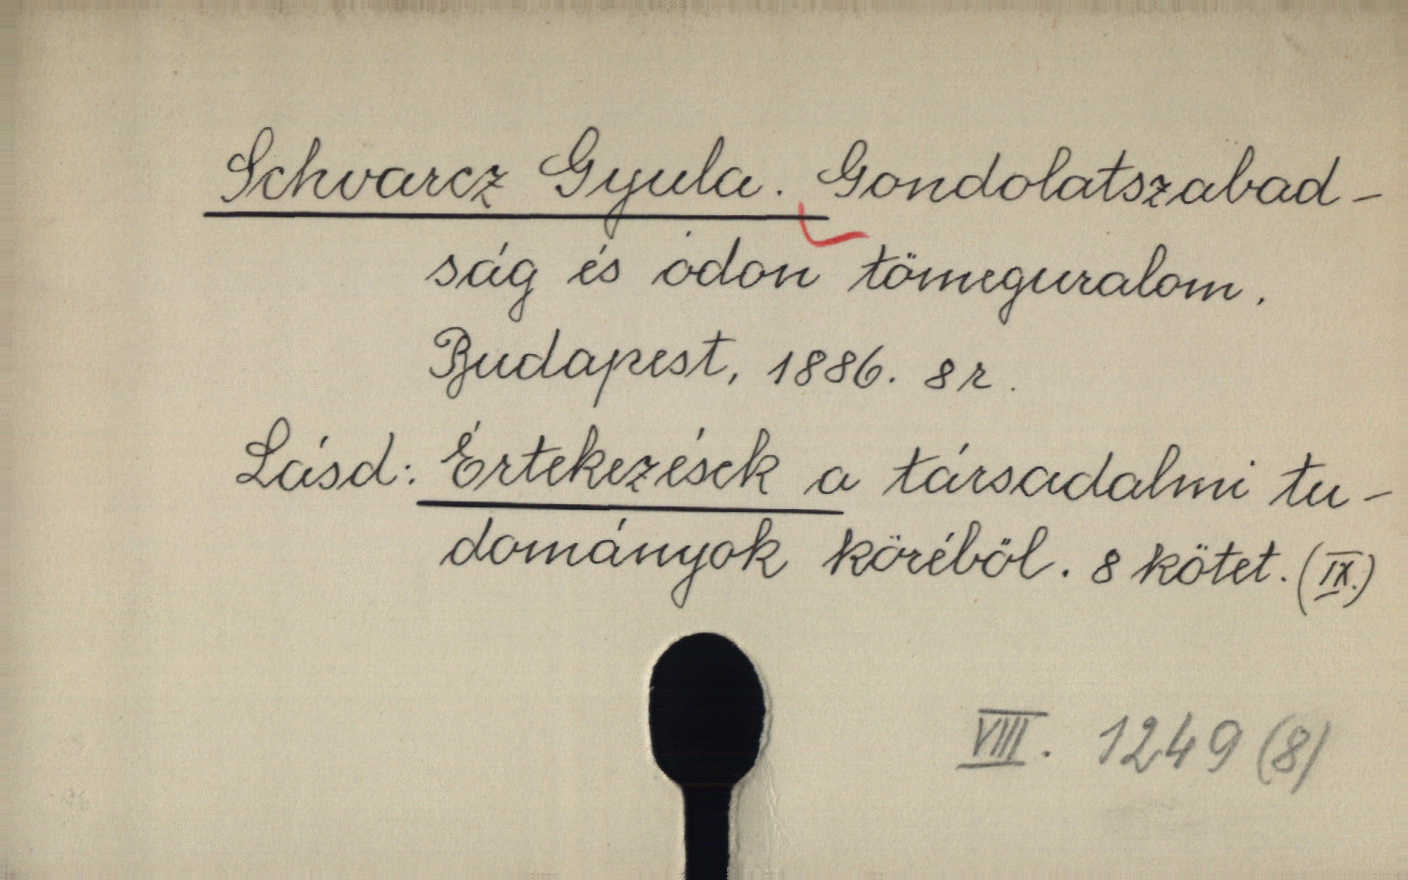 Schvarcz Gyula. Gondolatszabad-
ság és ódon tömeguralom.
Budapest, 1886. 8 r.
Lásd: Értekezések a társadalmi tu-
dományok köréböl. 8 kötet. (IX.)
VIII. 1249 (8)